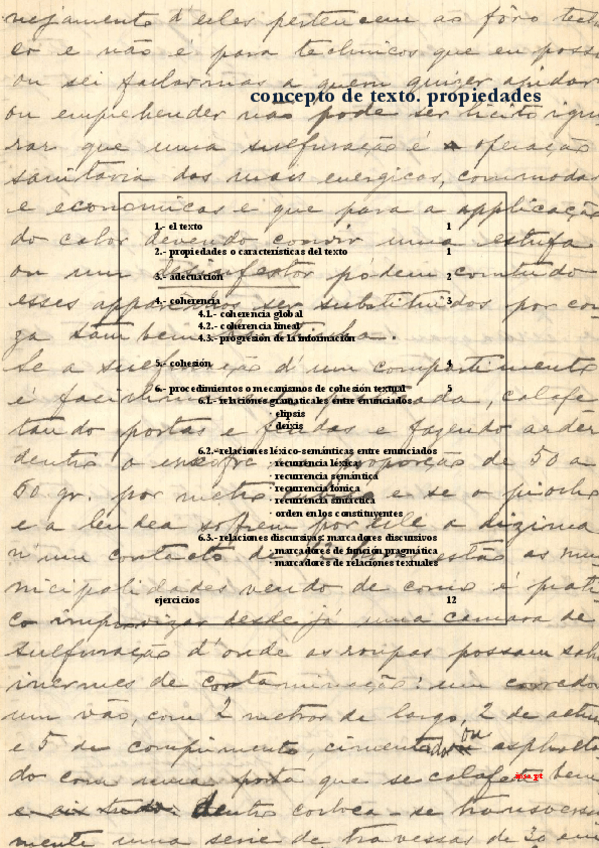 nejamento d'elles pertencem ao fôro tech
co e não é para technicos que eu posso
ou sei fallar mas a quem quizer ajudar
concepto de texto. propiedades
ou emprehender não pode ser licito igno
rar que uma sulfuração é a operação
sanitaria das mais energicas, commodas
e economicas e que para a applicação
1.- el texto 1
do calor devendo convir uma estufa
2.- propiedades o características del texto 1
ou um desinfestor podem comtudo
3.- adecuación 2
esses apparelhos ser substituidos por
4.- coherencia 3
4.1.- coherencia global
4.2.- coherencia lineal
4.3.- progresión de la información
Se a sulfuração d'um compartimento
5.- cohesión 4
6.- procedimientos o mecanismos de cohesión textual 5
6.1.- relaciones gramaticales entre enunciados
é calafe
· elipsis
tando portas e fendas e fazendo arder
· deixis
6.2.- relaciones léxico-semánticas entre enunciados
dentro o enxofre proporção de 50 a
· recurrencia léxica
· recurrencia semántica
· recurrencia fónica
60 gr. por metro cubico e se o piolho
· recurrencia sintáctica
· orden en los constituyentes
e a lendea sofrem por elle a dizima
6.3.- relaciones discursivas: marcadores discursivos
· marcadores de función pragmática
n'um contacto de horas estão as mu
· marcadores de relaciones textuales
nicipalidades vendo de como é prati
ejercicios 12
co improvizar desde já uma camara de
sulfuração d'onde as roupas possam sahir
inermes de contaminação: um corredor
um vão, com 2 metros de largo, 2 de altura
e 5 de comprimento, cimentado ou asphalta
do com uma porta que se calafete bem
dentro colloca-se transversal
mente uma serie de travessas de 30 em